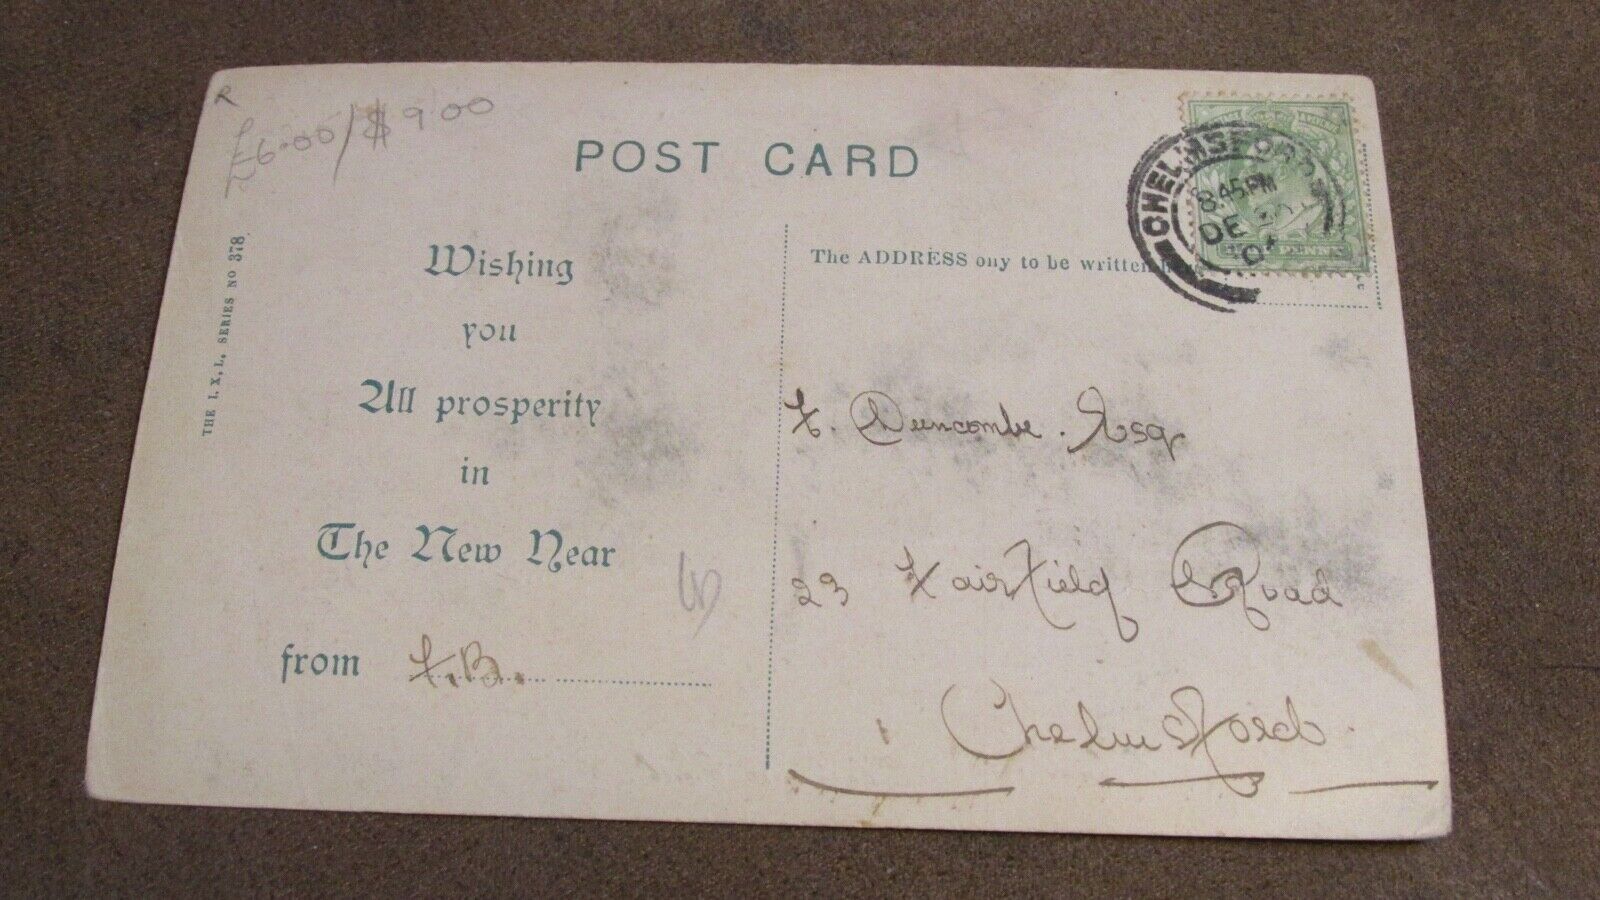 R
£6.00/$9.00
POST CARD
THE I. X. L. SERIES NO 378
Wishing
you
All prosperity
in
The New Year
from F.B.
The ADDRESS ony to be written
CHELMSFORD
8.45PM
DE
04
PENNY
F. Duncombe. Esq
23 Fairfield Road
Chelmsford.